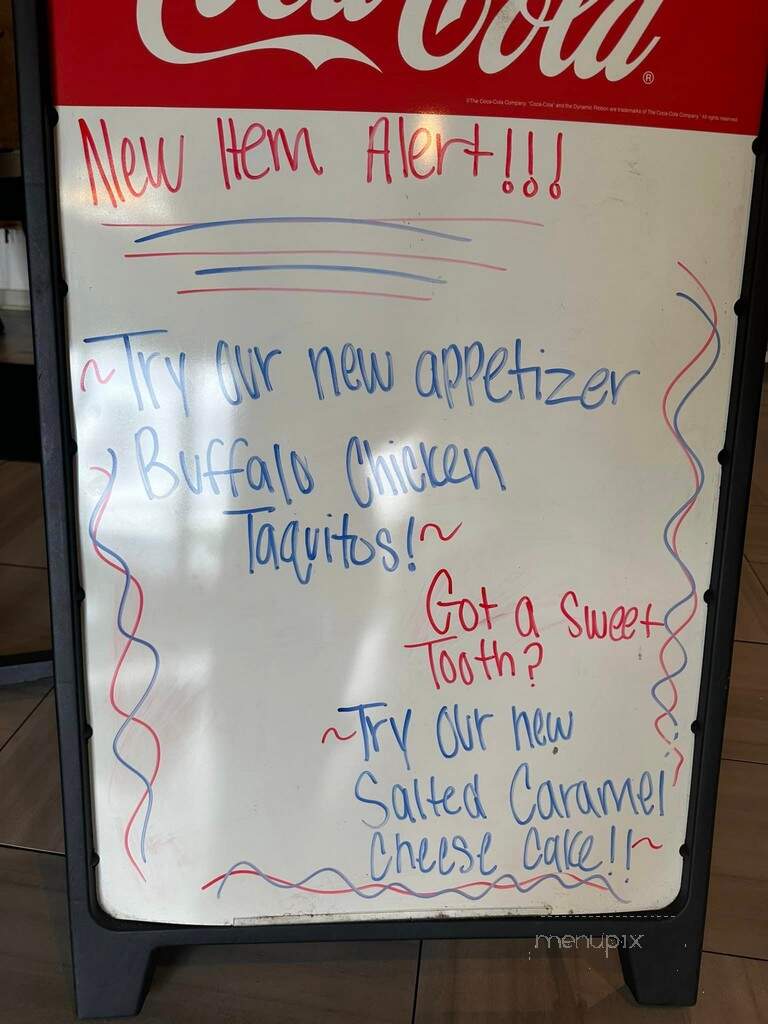 Coca-Cola®
©The Coca-Cola Company. "Coca-Cola" and the Dynamic Ribbon are trademarks of The Coca-Cola Company. All rights reserved.
New Item Alert!!!
~Try our new appetizer
Buffalo Chicken
Taquitos!~
Got a sweet
Tooth?
~Try our new
Salted Caramel
Cheese Cake!!~
menupix